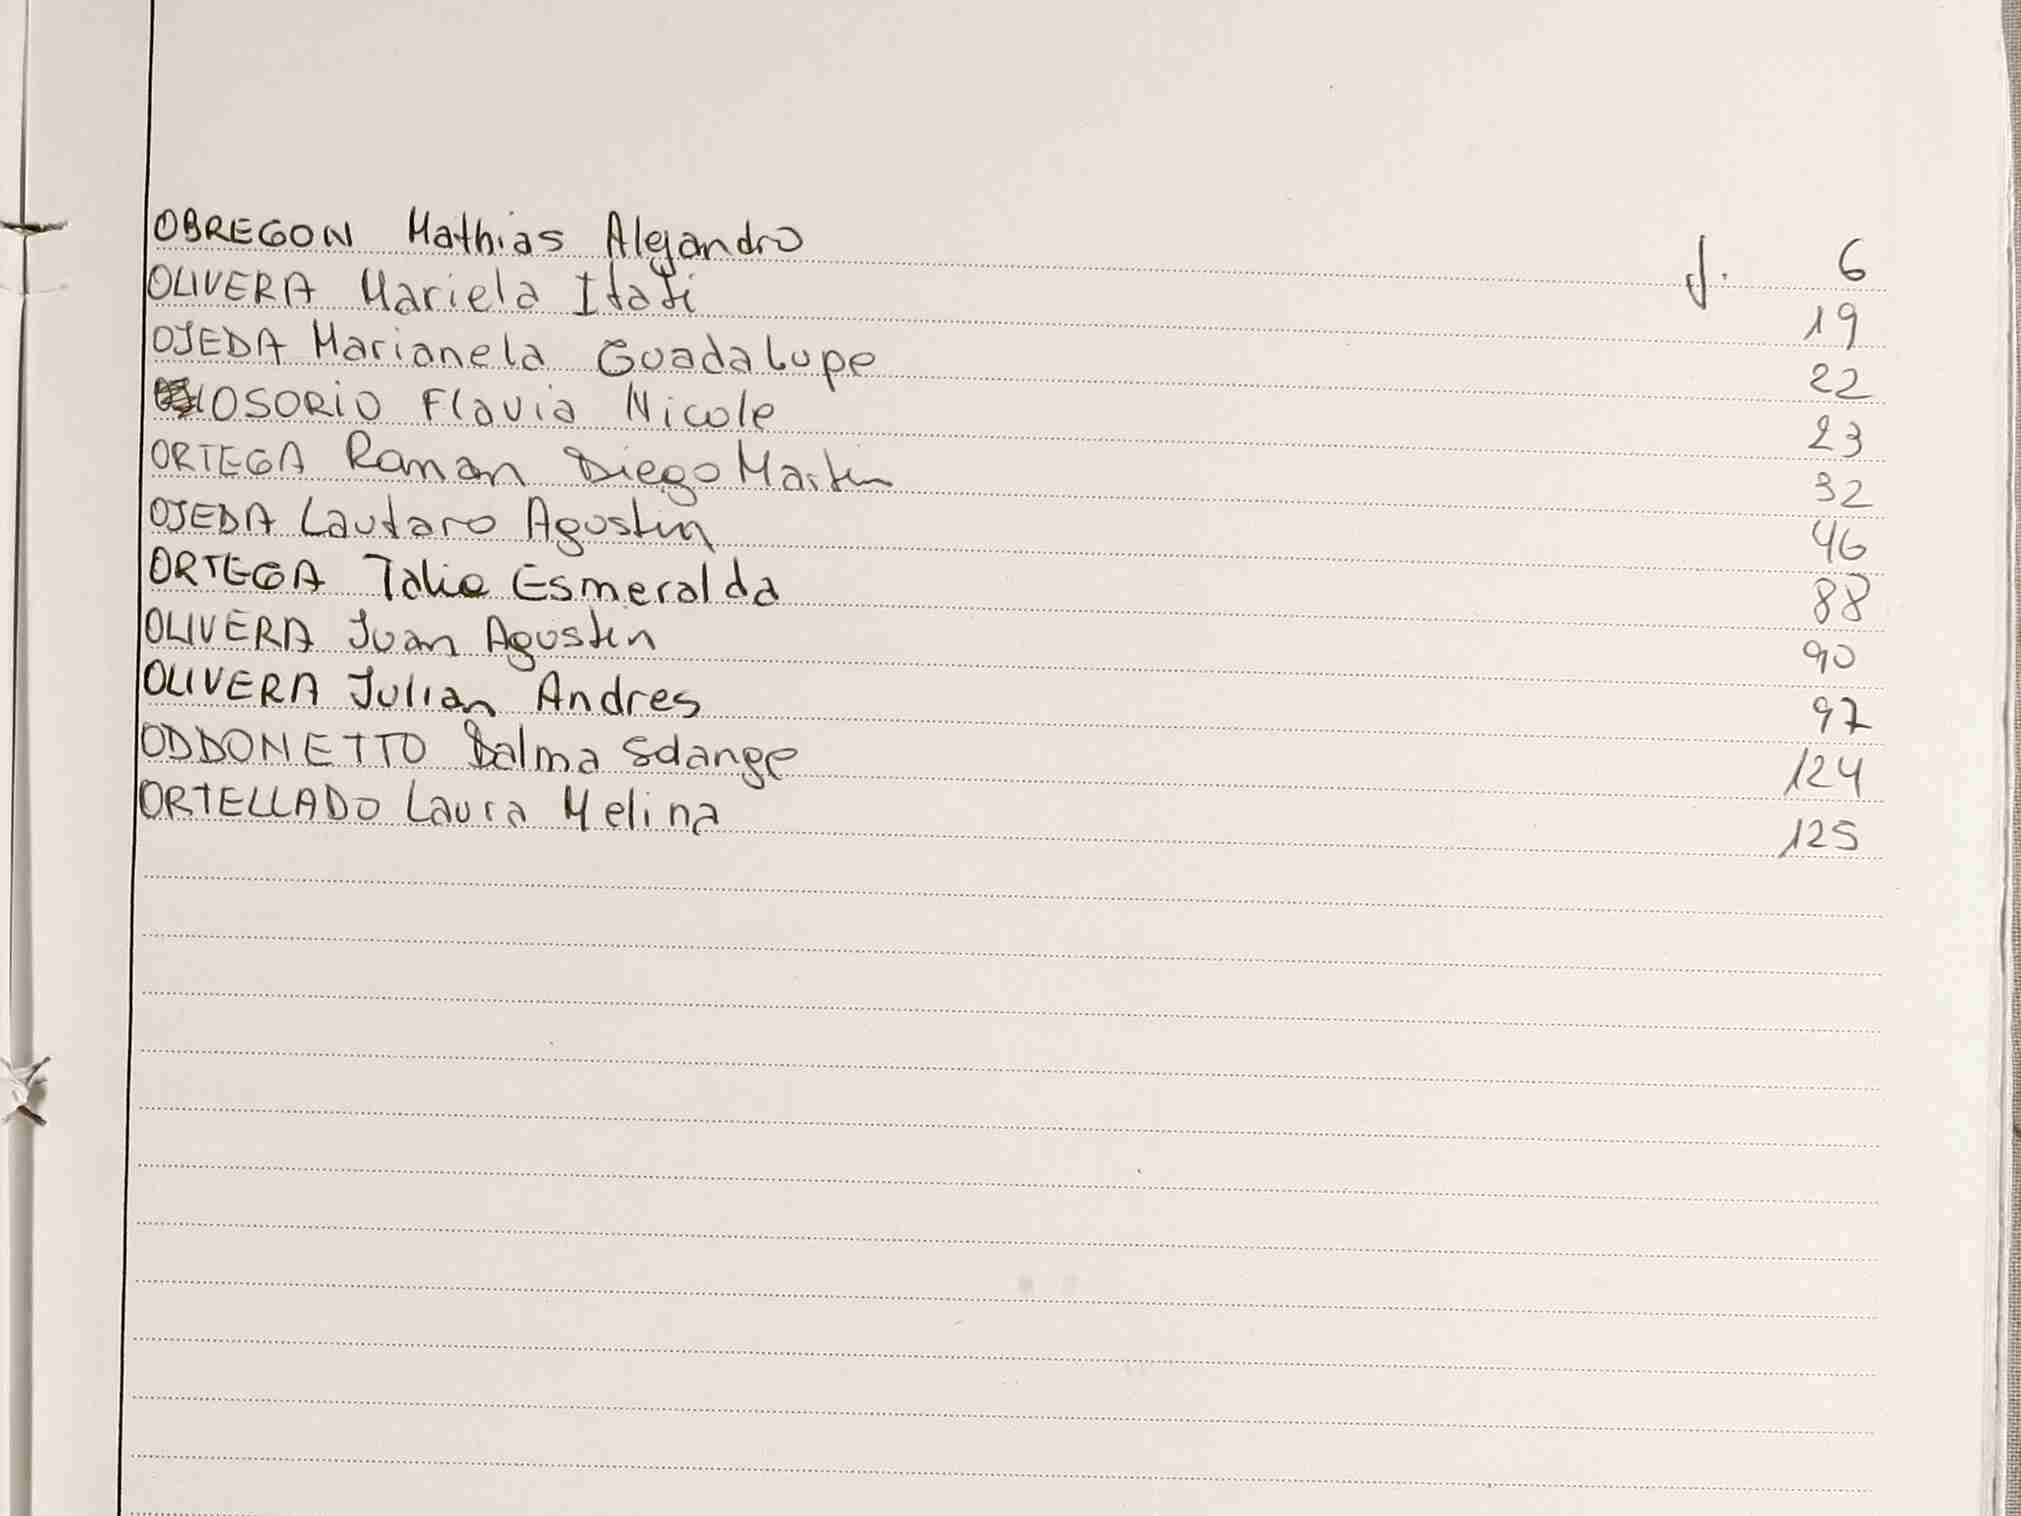 OBREGON Mathias Alejandro f. 6
OLIVERA Mariela Itati 19
OJEDA Marianela Guadalupe 22
OSORIO Flavia Nicole 23
ORTEGA Raman Diego Martin 32
OJEDA Lautaro Agustin 46
ORTEGA Talia Esmeralda 88
OLIVERA Juan Agustin 90
OLIVERA Julian Andres 97
ODDONETTO Dalma Solange 124
ORTELLADO Laura Melina 125